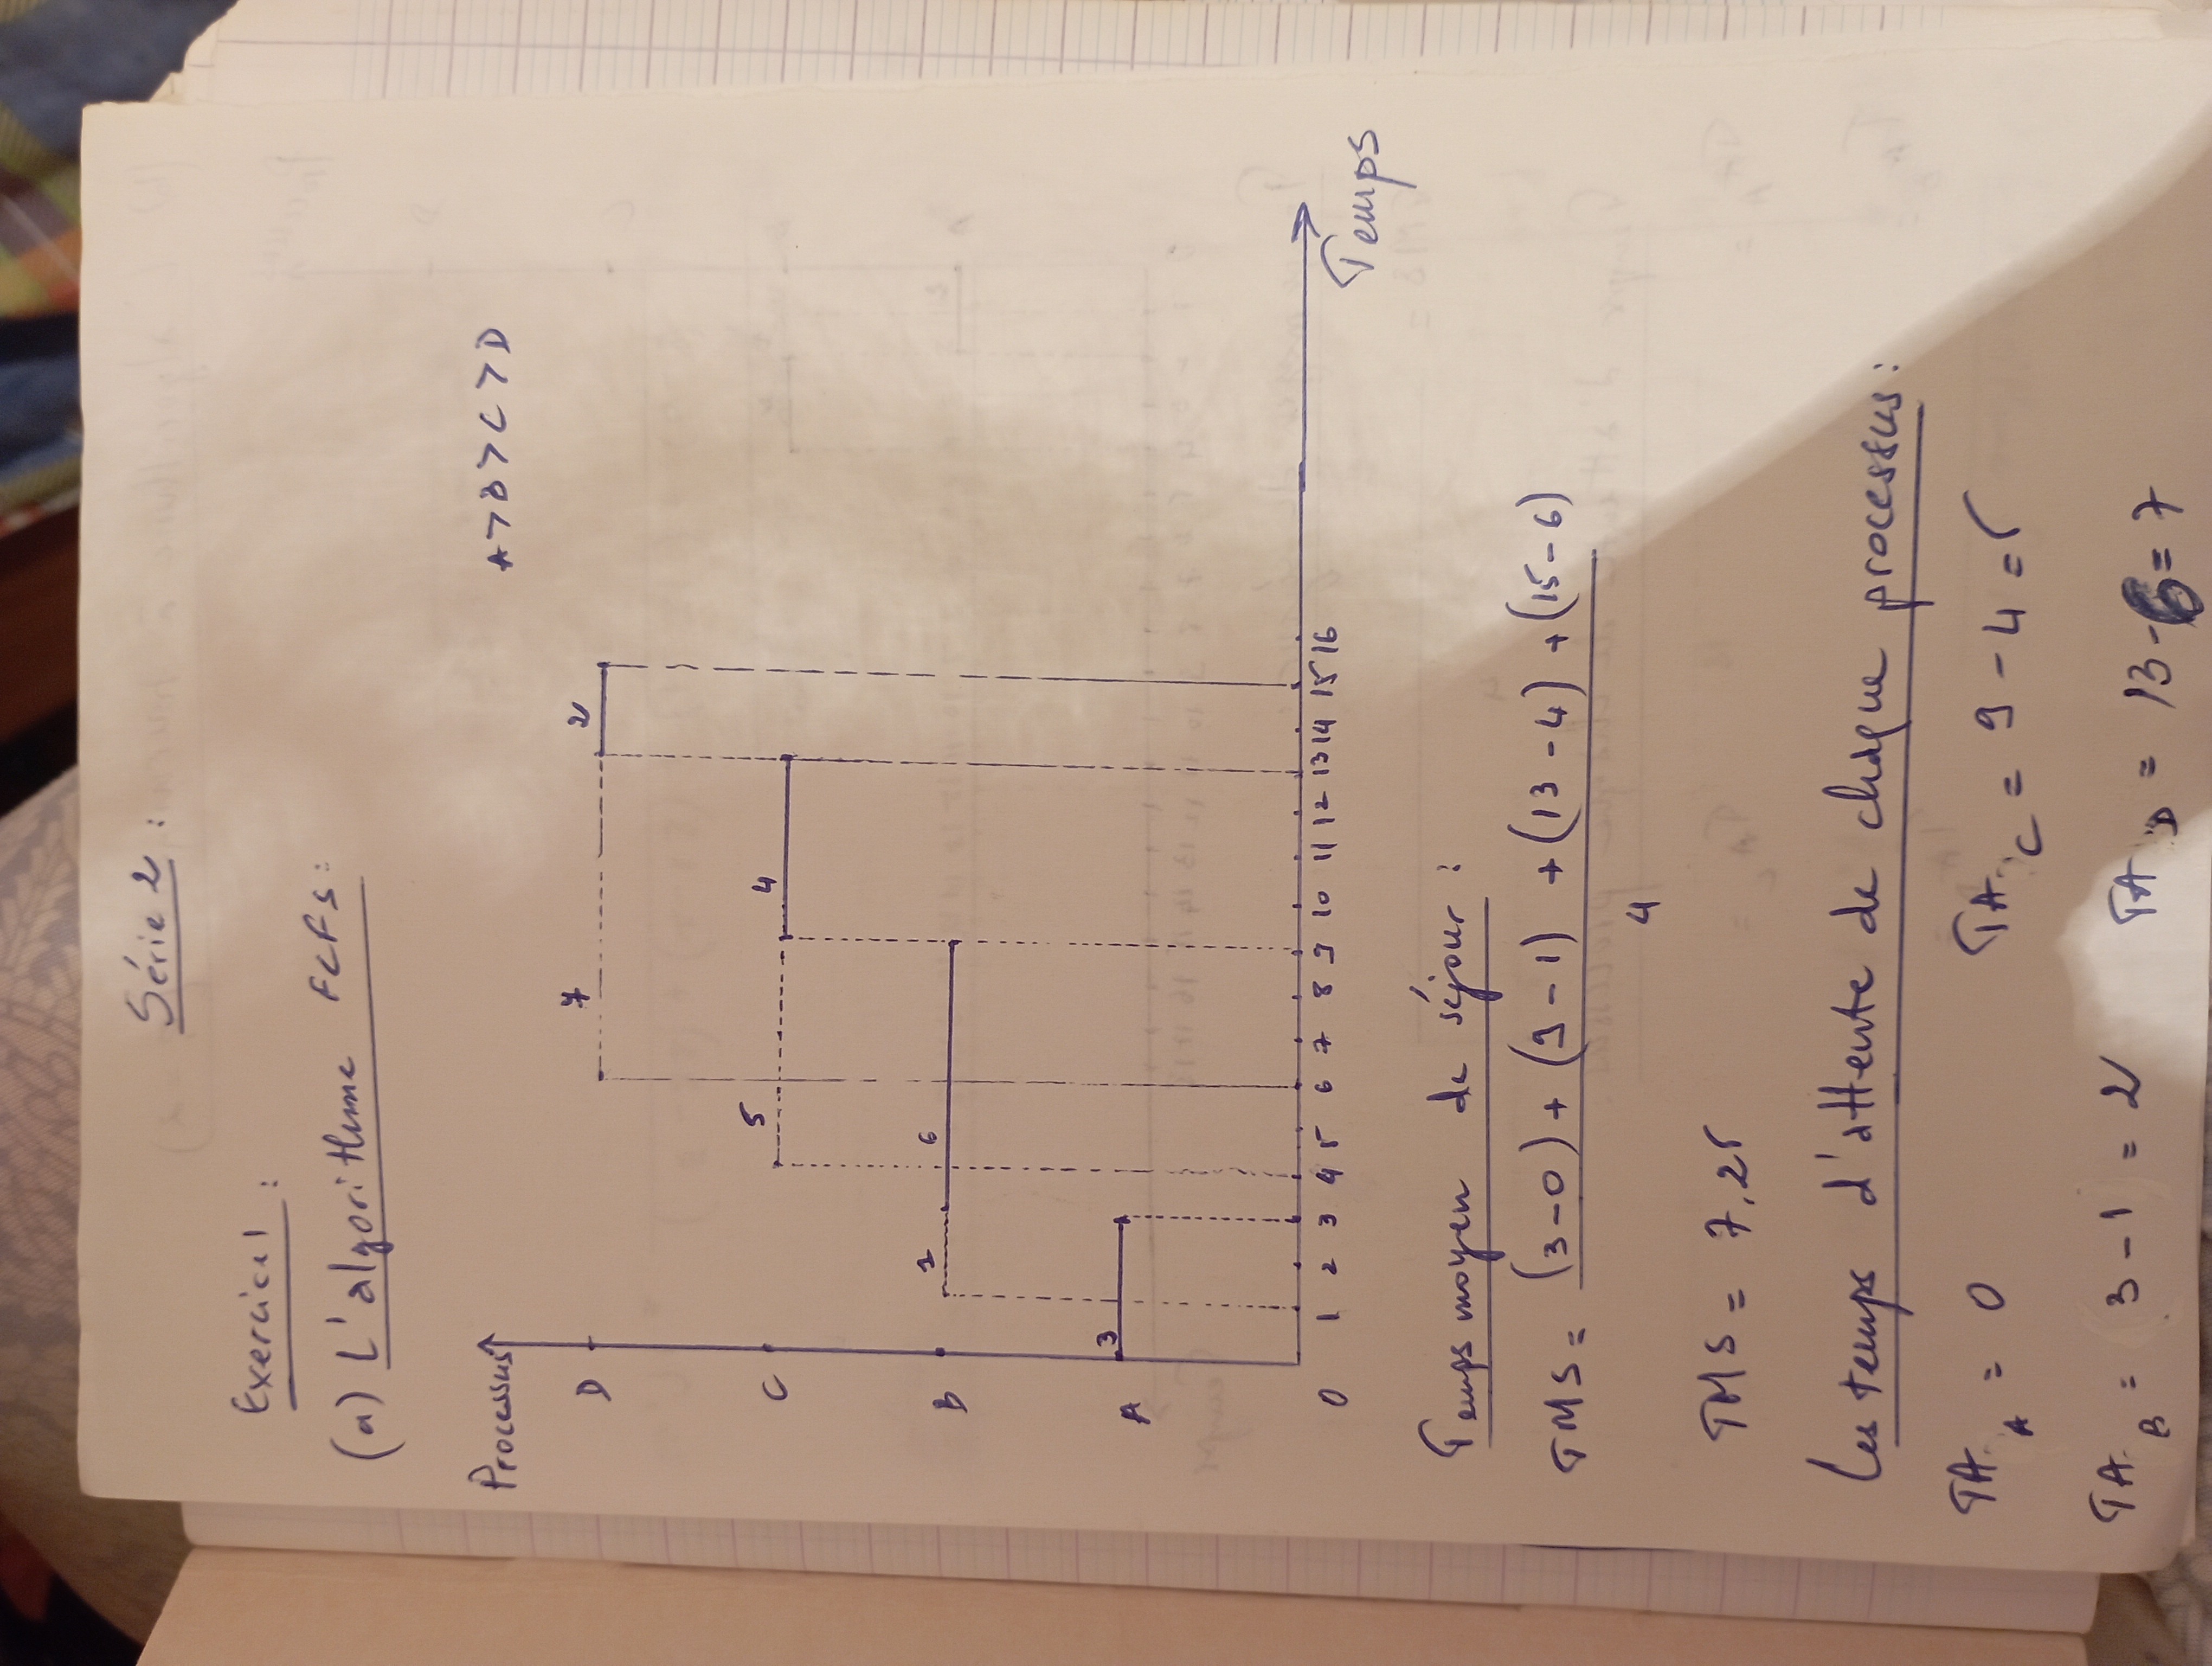 Série 2 :
Exercice 1 :
(a) L'algorithme FCFS :
Processus
A > B > C > D
D 7 2
C 5 4
B 6
A 3
0 1 2 3 4 5 6 7 8 9 10 11 12 13 14 15 16
Temps
Temps moyen de séjour :
TMS = (3-0) + (9-1) + (13-4) + (15-6)
4
TMS = 7,25
Les temps d'attente de chaque processus :
TA A = 0 TA C = 9 - 4 = 5
TA B = 3 - 1 = 2 TA D = 13 - 6 = 7